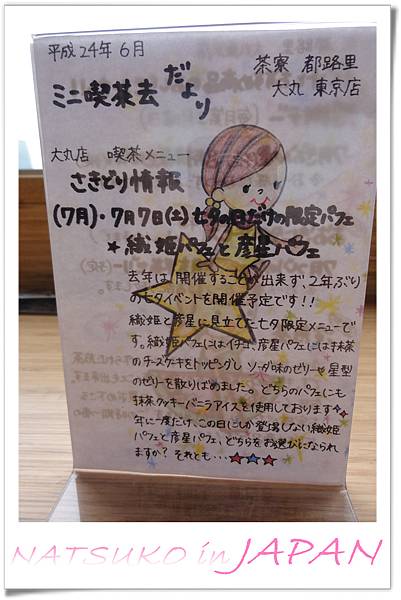 平成24年6月
茶寮 都路里
大丸 東京店
ミニ喫茶去だより
大丸店 喫茶メニュー
さきどり情報
(7月)・7月7日(土)七夕の日だけの限定パフェ
★織姫パフェと彦星パフェ
去年は、開催することが出来ず、2年ぶり
の七夕イベントを開催予定です!!
織姫と彦星に見立てた七夕限定メニューで
す。織姫パフェにはイチゴ、彦星パフェには抹茶
のチーズケーキをトッピングし ソーダ味のゼリーや星型
のゼリーを散りばめました。どちらのパフェにも
抹茶クッキーバニラアイスを使用しております
年に一度だけ、この日にしか登場しない織姫
パフェと彦星パフェ、どちらをお選びになられ
ますか? それとも・・・★★★
NATSUKO in JAPAN